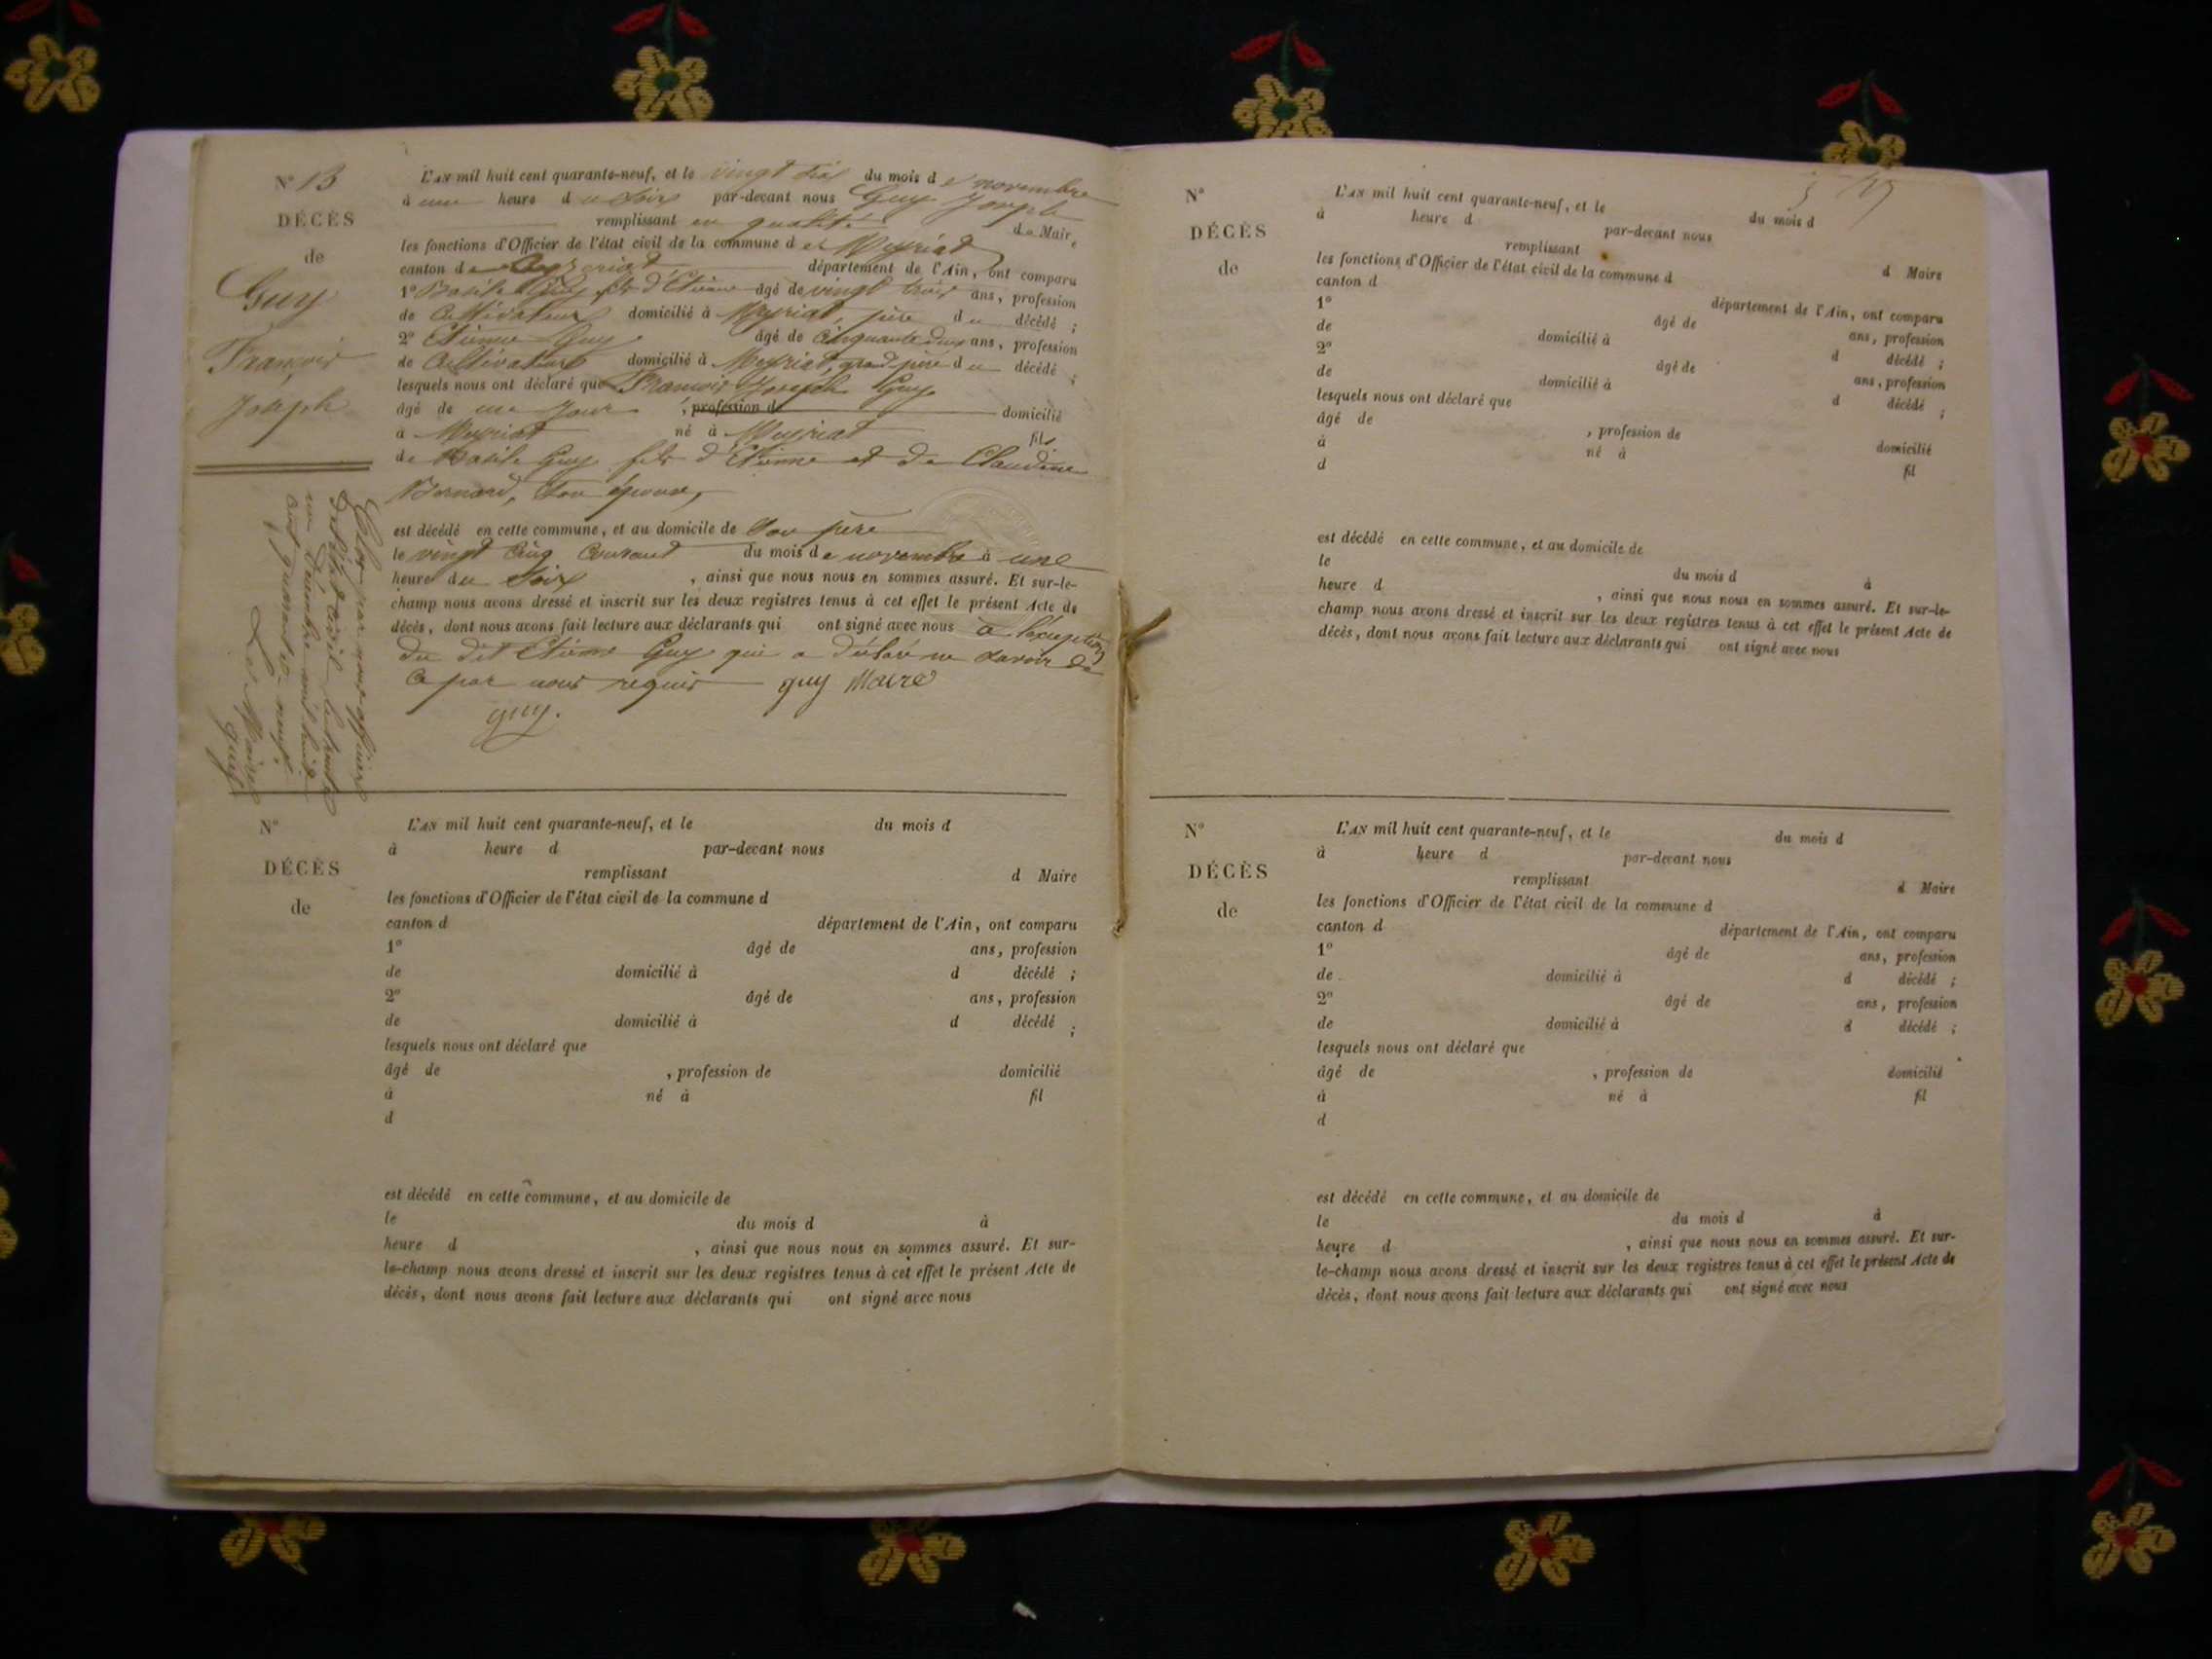 N° 13
DÉCÈS
de
Guy
François
Joseph
L'AN mil huit cent quarante-neuf, et le vingt six du mois de novembre
à une heure du soir par-devant nous Guy Joseph
remplissant en qualité de Maire
les fonctions d'Officier de l'état civil de la commune de Meyriat
canton de département de l'Ain, ont comparu
1° Basile Guy fils d'Étienne âgé de vingt trois ans, profession
de Cultivateur domicilié à Meyriat, père du décédé ;
2° Etienne Guy âgé de Cinquante deux ans, profession
de Cultivateur domicilié à Meyriat, grand père du décédé ;
lesquels nous ont déclaré que François Joseph Guy
âgé de un jour , profession d domicilié
à Meyriat né à Meyriat fils
de Basile Guy fils d'Etienne et de Claudine
Bernard, son épouse,
est décédé en cette commune, et au domicile de son père
le vingt cinq courant du mois de novembre à une
heure du soir , ainsi que nous nous en sommes assuré. Et sur-le-
champ nous avons dressé et inscrit sur les deux registres tenus à cet effet le présent Acte de
décès, dont nous avons fait lecture aux déclarants qui ont signé avec nous à l'exception
du dit Etienne Guy qui a déclaré ne savoir de
ce par nous requis guy Maire
guy.
Clos par nous officier
de l'état civil le trente
un Décembre mil huit
cent quarante-neuf.
Le Maire
guy
N°
DÉCÈS
de
L'AN mil huit cent quarante-neuf, et le du mois d
à heure d par-devant nous
remplissant d Maire
les fonctions d'Officier de l'état civil de la commune d
canton d département de l'Ain, ont comparu
1° âgé de ans, profession
de domicilié à d décédé ;
2° âgé de ans, profession
de domicilié à d décédé ;
lesquels nous ont déclaré que
âgé de , profession de domicilié
à né à fil
d
est décédé en cette commune, et au domicile de
le du mois d à
heure d , ainsi que nous nous en sommes assuré. Et sur-
le-champ nous avons dressé et inscrit sur les deux registres tenus à cet effet le présent Acte de
décès, dont nous avons fait lecture aux déclarants qui ont signé avec nous
N°
DÉCÈS
de
L'AN mil huit cent quarante-neuf, et le du mois d
à heure d par-devant nous
remplissant d Maire
les fonctions d'Officier de l'état civil de la commune d
canton d département de l'Ain, ont comparu
1° âgé de ans, profession
de domicilié à d décédé ;
2° âgé de ans, profession
de domicilié à d décédé ;
lesquels nous ont déclaré que
âgé de , profession de domicilié
à né à fil
d
est décédé en cette commune, et au domicile de
le du mois d à
heure d , ainsi que nous nous en sommes assuré. Et sur-le-
champ nous avons dressé et inscrit sur les deux registres tenus à cet effet le présent Acte de
décès, dont nous avons fait lecture aux déclarants qui ont signé avec nous
N°
DÉCÈS
de
L'AN mil huit cent quarante-neuf, et le du mois d
à heure d par-devant nous
remplissant d Maire
les fonctions d'Officier de l'état civil de la commune d
canton d département de l'Ain, ont comparu
1° âgé de ans, profession
de domicilié à d décédé ;
2° âgé de ans, profession
de domicilié à d décédé ;
lesquels nous ont déclaré que
âgé de , profession de domicilié
à né à fil
d
est décédé en cette commune, et au domicile de
le du mois d à
heure d , ainsi que nous nous en sommes assuré. Et sur-
le-champ nous avons dressé et inscrit sur les deux registres tenus à cet effet le présent Acte de
décès, dont nous avons fait lecture aux déclarants qui ont signé avec nous